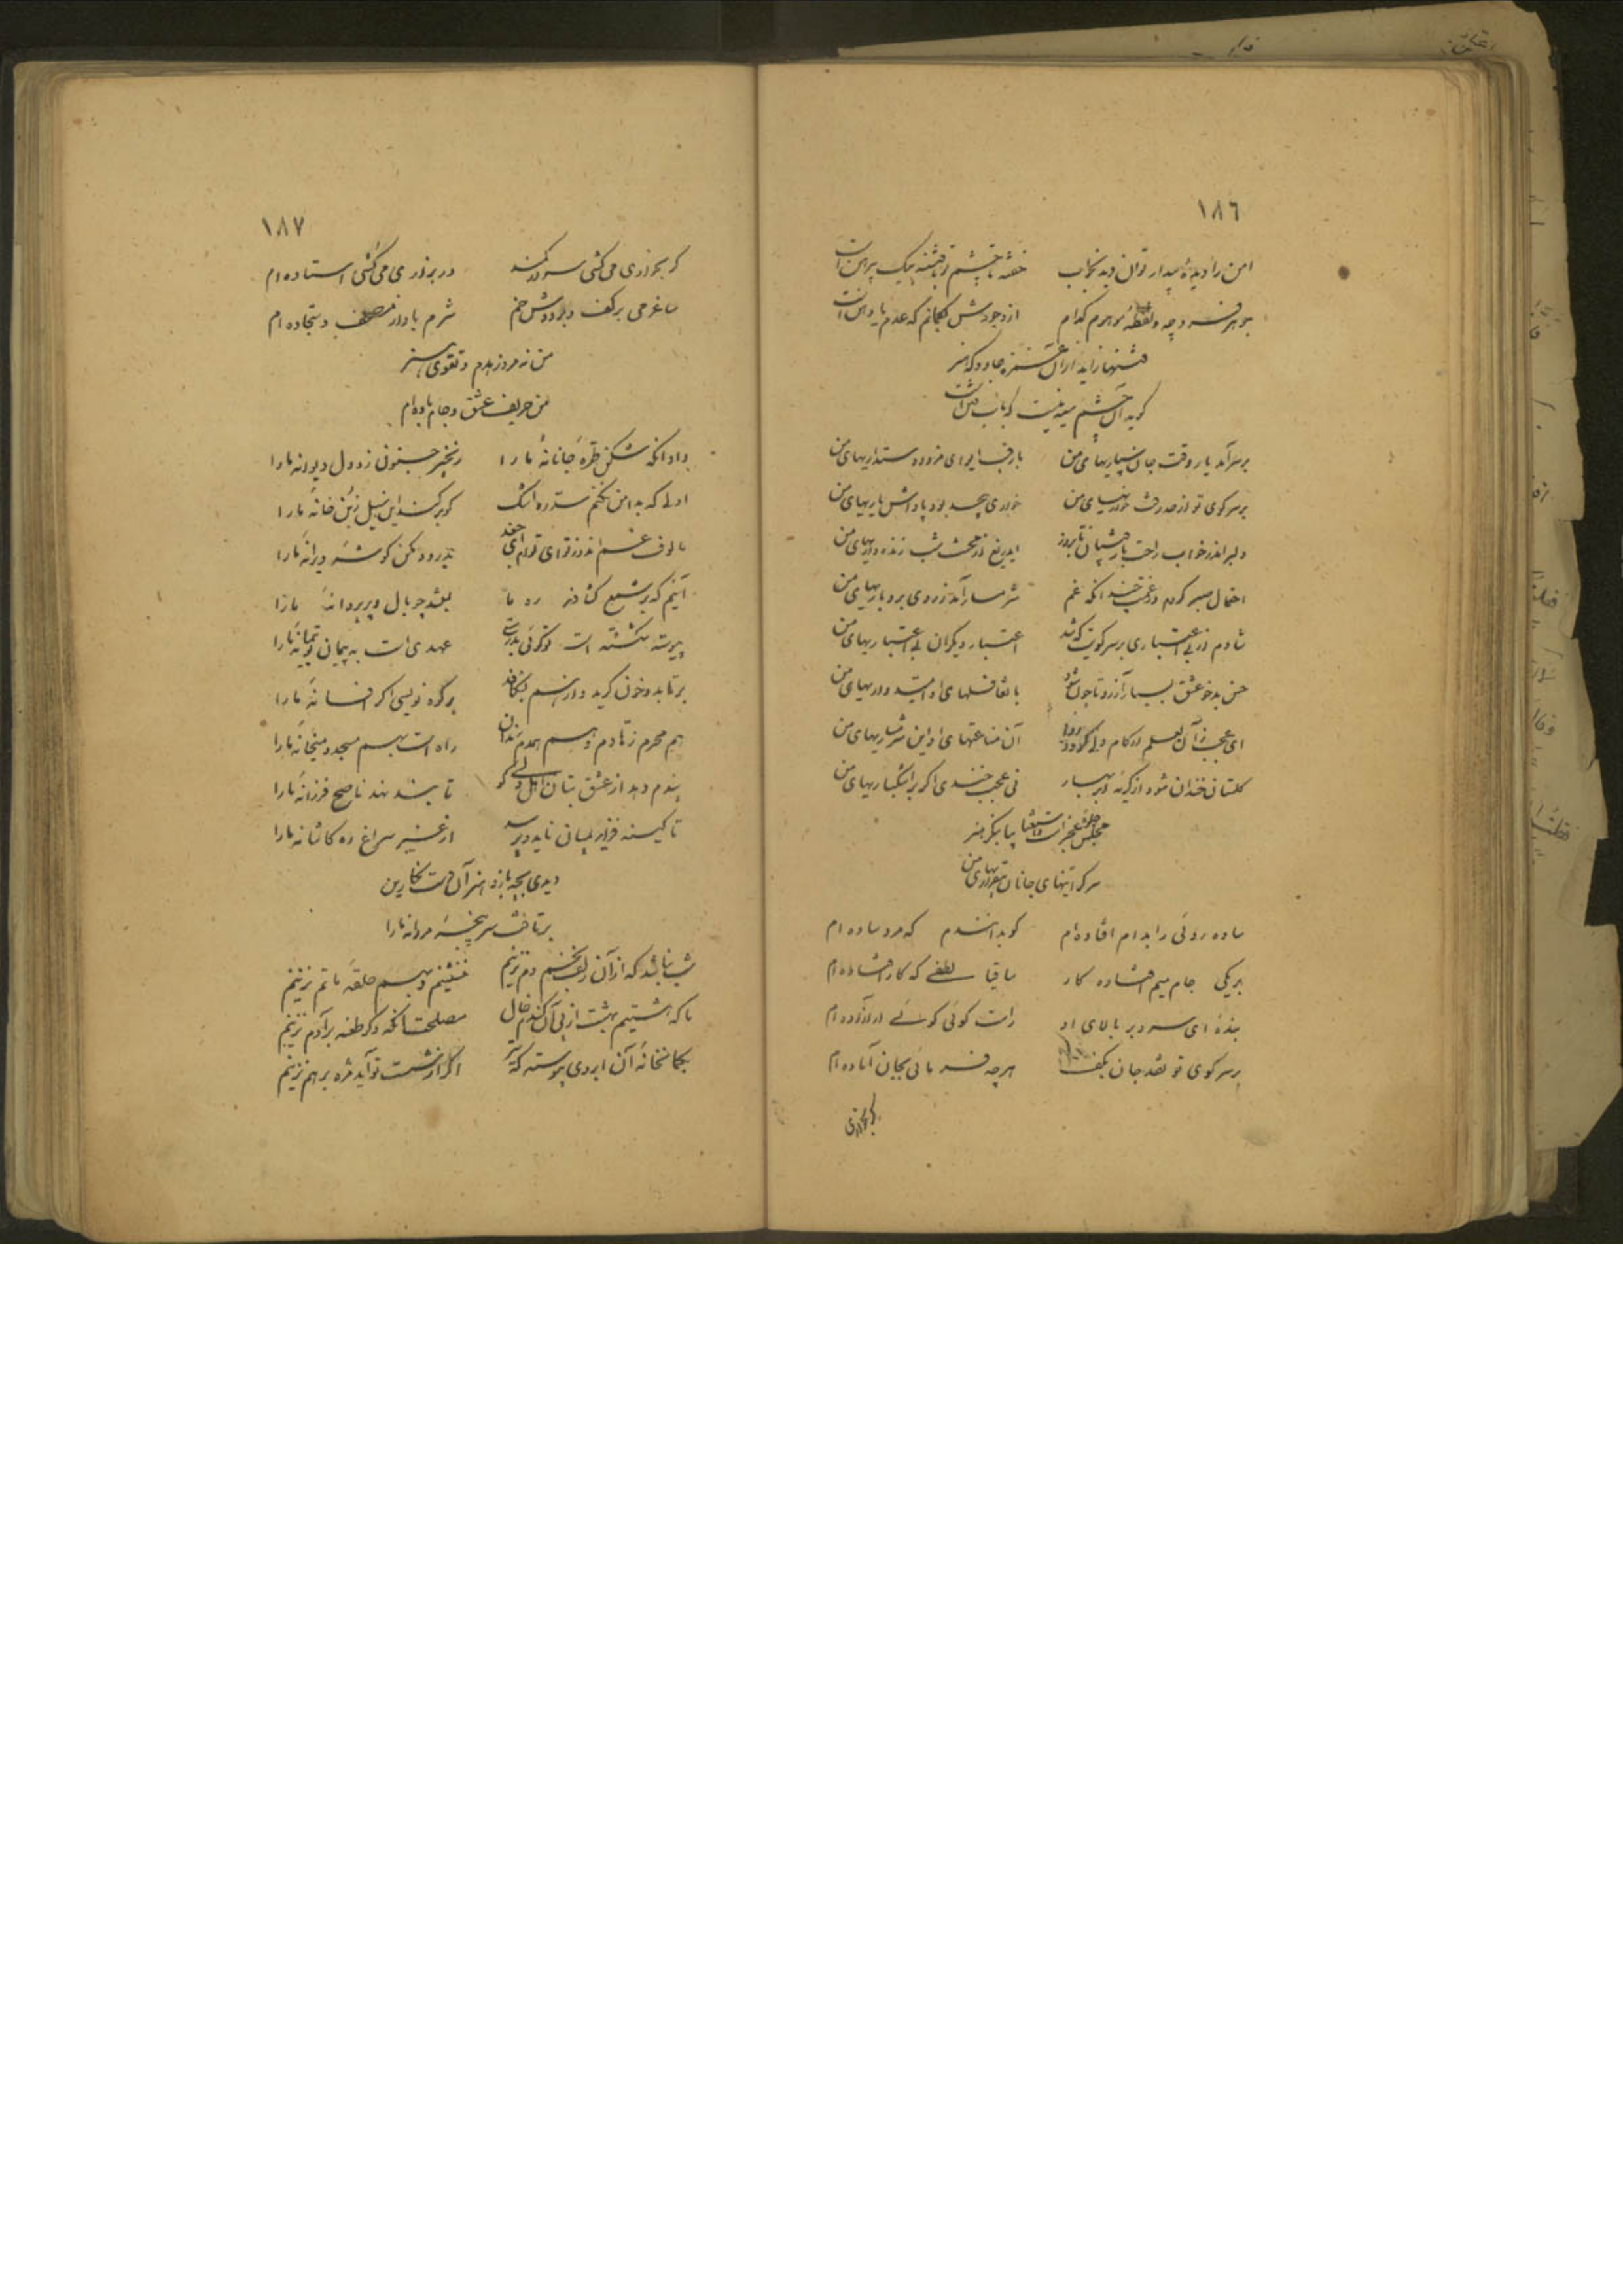 ١٨٦
امن را دیدهٔ بیدار توان دید بخواب خفته تا چشم تو با فتنه بیک پیراهن است
جوهر فرد چه و نقطهٔ موهوم کدام از وجودش بگمانم که عدم یا دهن است
فتنها زاید از آن غمزهٔ جادو که هنر
گوید آن چشم سیه نیست که باب فتن است
بر سر آمد یار وقت جان سپاریهای من با رقیب ای وای مزد دوستداریهای من
بر سر کوی تو از حد رفت خواریهای من خواری بیحد بود پاداش یاریهای من
دلبر اندر خواب راحت با رقیبان تا بروز ایدریغ از محنت شب زنده‌داریهای من
احتمال صبر کردم در غمت خندانکه غم شرمسار آمد ز روی بردباریهای من
شادم از بی اعتباری بر سر کویت که شد اعتبار دیگران بی اعتباریهای من
حسن بدخو عشق بسیار آرزو تا چون شود با تغافلهای او امیدواریهای من
ای عجب زآن لعلم ار کام دلی آن مناعتهای او این شرمساریهای من
گلستان خندان شود از گریهٔ ابر بهار نی عجب خندی اگر بر اشکباریهای من
مجلس بیا بنگر هنر
سرگرانیهای جانان بیقراریهای من
ساده روئی را بدام افتاده‌ام گوید افتادم که مرد ساده‌ام
بر یکی جام میم افتاده کار ساقیا لطفی که کار افتاده‌ام
بندهٔ ای سرو بر بالای او راست گوئی گوئی ار آزاده‌ام
بر سر کوی تو نقد جان بکف هر چه فرمائی بجان آماده‌ام
گر بخواری
١٨٧
گر بخواری می کشی سر در کمند ور بزاری می کُشی استاده‌ام
ساغر می بر کف و بر دوش خم شرم باد از مصحف و سجاده‌ام
من نه مرد زهدم و تقوی هنر
من حریف عشق و جام باده‌ام
داد آنکه شکن طرهٔ جانانهٔ ما را زنجیر جنون زد دل دیوانهٔ ما را
اولی که بدامن نکنم سد ره اشک گو برکند این سیل ز بن خانهٔ ما را
مالوف غم اندوز توای توام ای جغد بدرود مکن گوشهٔ ویرانهٔ ما را
آنیم که بر شمع گشادند ره ما بستند چو بال و پر پروانهٔ ما را
پیوسته شکسته است تو گوئی بدرستی عهدی است به پیمان تو پیمانهٔ ما را
برتابد و خون گرید و از هم بشکافد بر کوه نویسی اگر افسانهٔ ما را
هم محرم زهادم و هم همدم رندان راه است بهم مسجد و میخانهٔ ما را
پندم دهد از عشق بتان اهل دلی کو تا پند دهد ناصح فرزانهٔ ما را
تا کینه فزاید بمیان ناید و پرسد از غیر سراغ ره کاشانهٔ ما را
دیدی بچه بازو هنر آن دست نگارین
برتافت سر پنجهٔ مردانهٔ ما را
شب نباشد که از آن زلف بخم دم نزنیم ننشینیم و بهم حلقهٔ ماتم نزنیم
ما که هشتیم بهشت از پی آن گندم خال مصلحت آنکه دگر طعنه بر آدم نزنیم
بکمانخانهٔ آن ابروی پیوسته که تیر اگر از شست تو آید مژه بر هم نزنیم